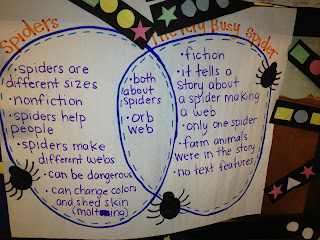 Spiders
The Very Busy Spider
• spiders are
different sizes
• nonfiction
• spiders help
people
• spiders make
different webs
• can be dangerous
• can change colors
and shed skin
(molting)
• both
about
spiders
• orb
web
• fiction
• it tells a
story about
a spider making
a web
• only one spider
• farm animals
were in the story
• no text features